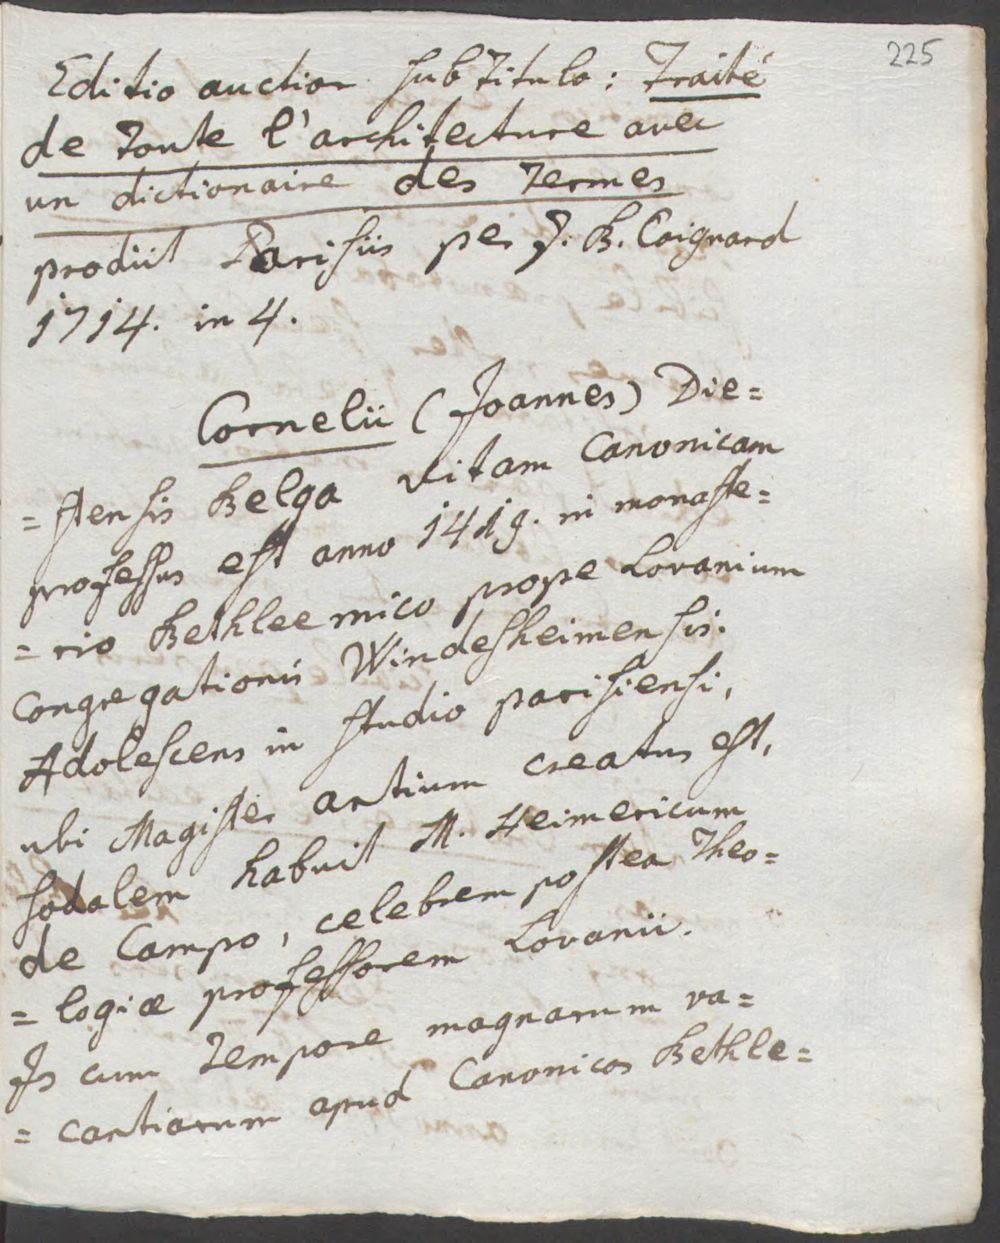 225
Editio auctior sub titulo: Traité
de toute l'architecture avec
un dictionaire des termes
prodiit Parisiis per J. B. Coignard
1714. in 4.
Cornelii (Joannes) Die=
=stensis Belga vitam Canonicam
professus est anno 1419. in monaste=
=rio Bethleemico prope Lovanium
Congregationis Windesheimensis.
Adolescens in studio parisiensi,
ubi Magister artium creatus est,
sodalem habuit M. Heimericum
de Campo, celebrem postea Theo=
=logiæ professorem Lovanii.
Is cum tempore magnarum va=
=cantiarum apud Canonicos Bethle=